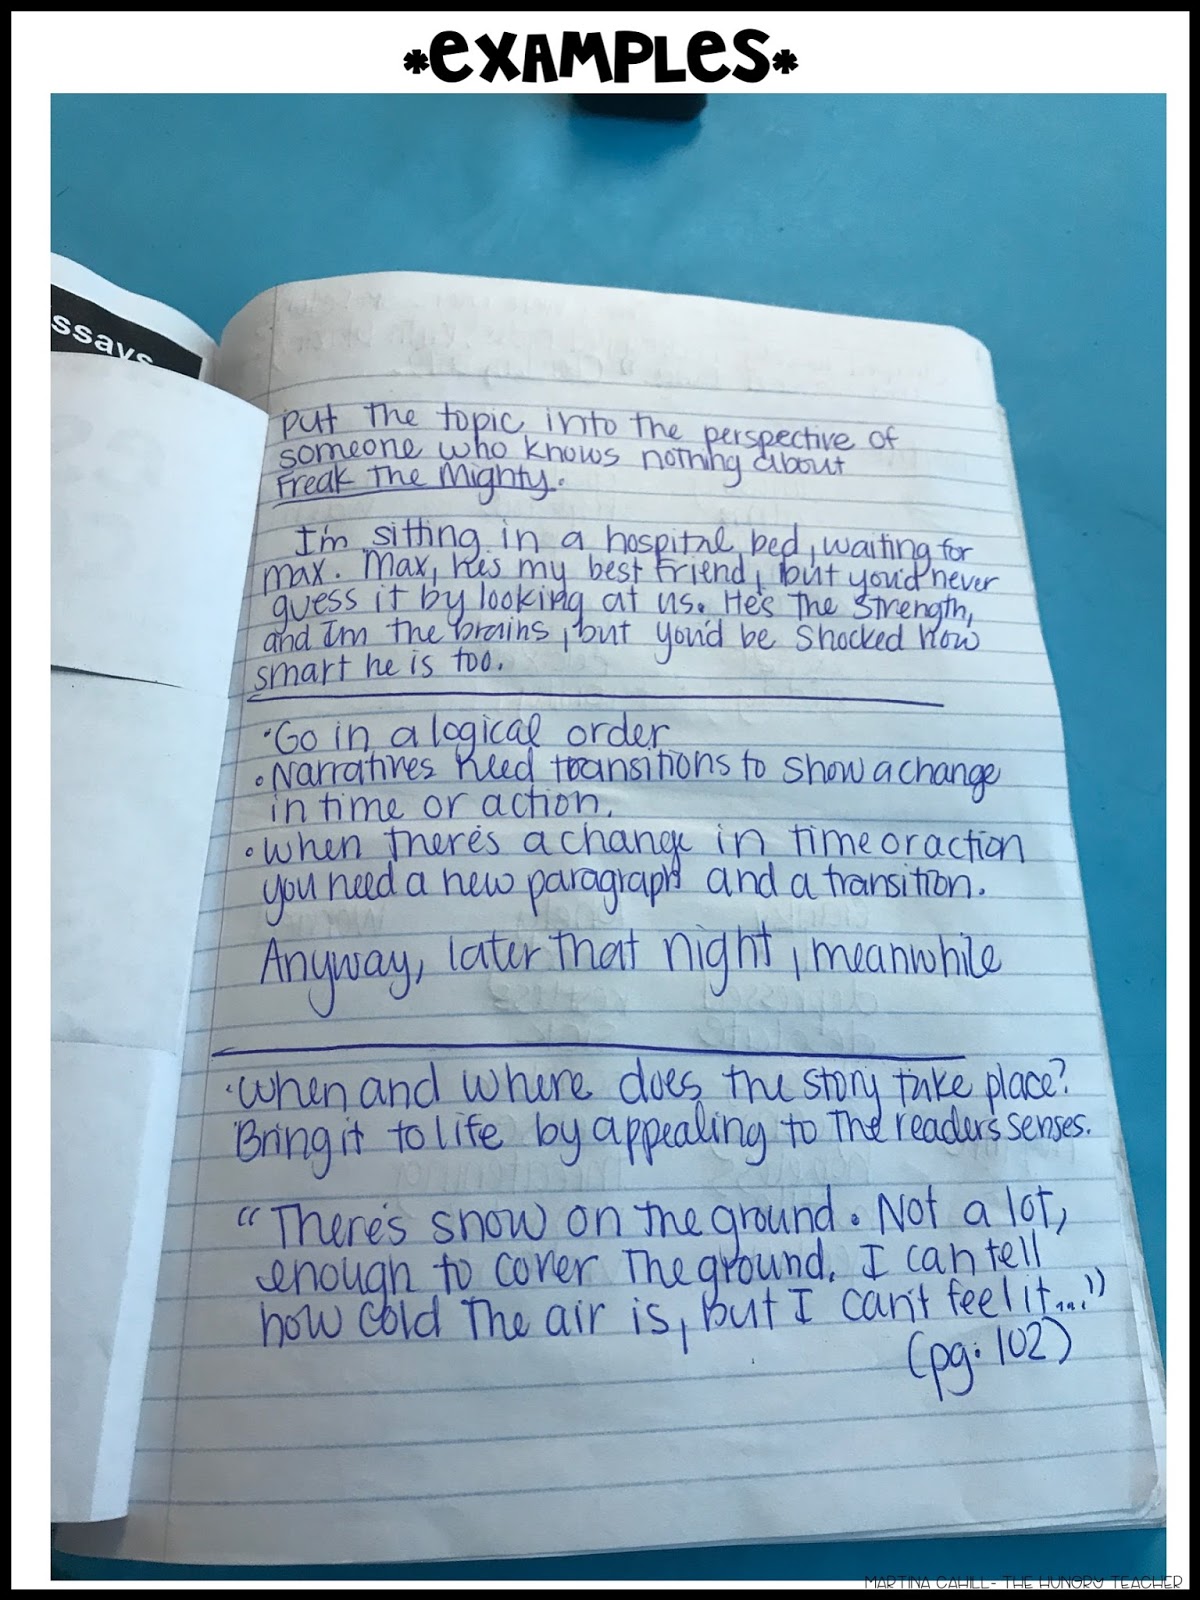 *EXAMPLES*
ssays
Put the topic into the perspective of
someone who knows nothing about
Freak The Mighty.
I'm sitting in a hospital bed, waiting for
Max. Max, he's my best friend, but you'd never
guess it by looking at us. He's the strength,
and I'm the brains, but you'd be shocked how
smart he is too.
•Go in a logical order
•Narratives need transitions to show a change
in time or action.
•When there's a change in time or action
you need a new paragraph and a transition.
Anyway, later that night, meanwhile
•When and where does the story take place?
Bring it to life by appealing to the readers senses.
"There's snow on the ground. Not a lot,
enough to cover the ground. I can tell
how cold the air is, but I can't feel it..."
(pg. 102)
MARTINA CAHILL- THE HUNGRY TEACHER